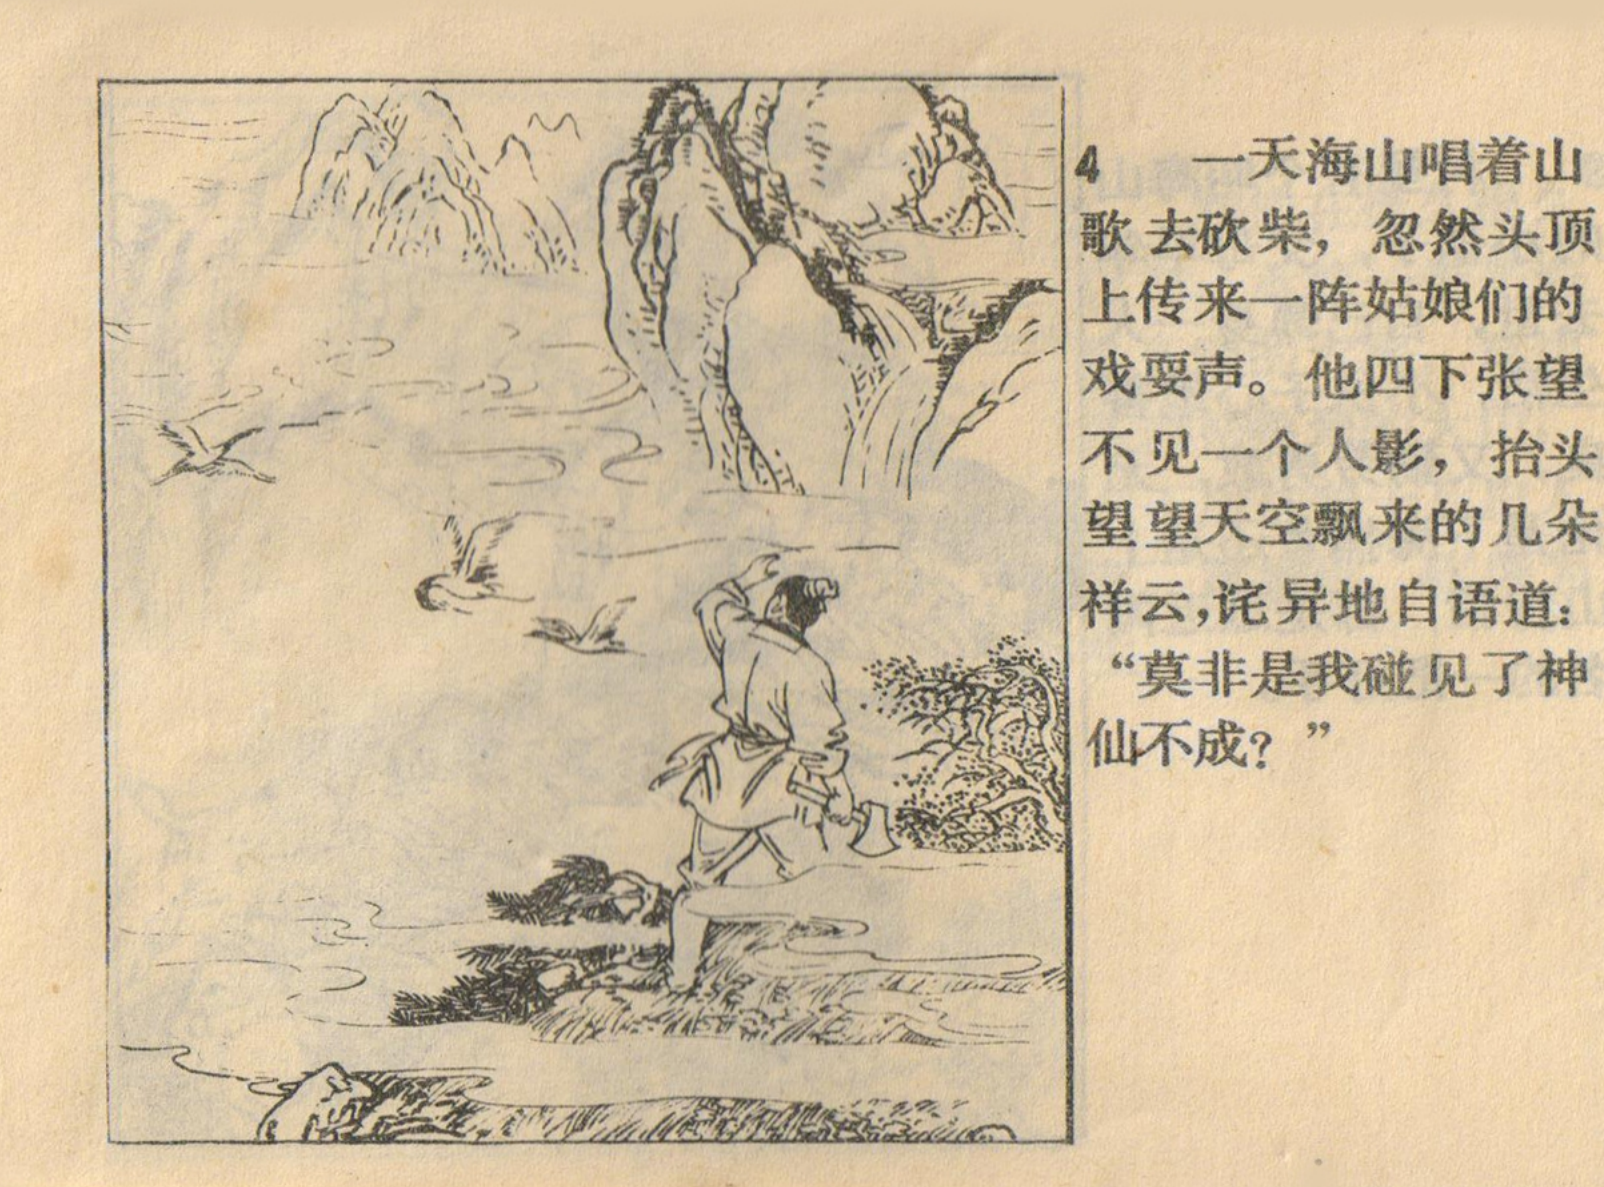 4 一天海山唱着山
歌去砍柴，忽然头顶
上传来一阵姑娘们的
戏耍声。他四下张望
不见一个人影，抬头
望望天空飘来的几朵
祥云，诧异地自语道：
“莫非是我碰见了神
仙不成？”